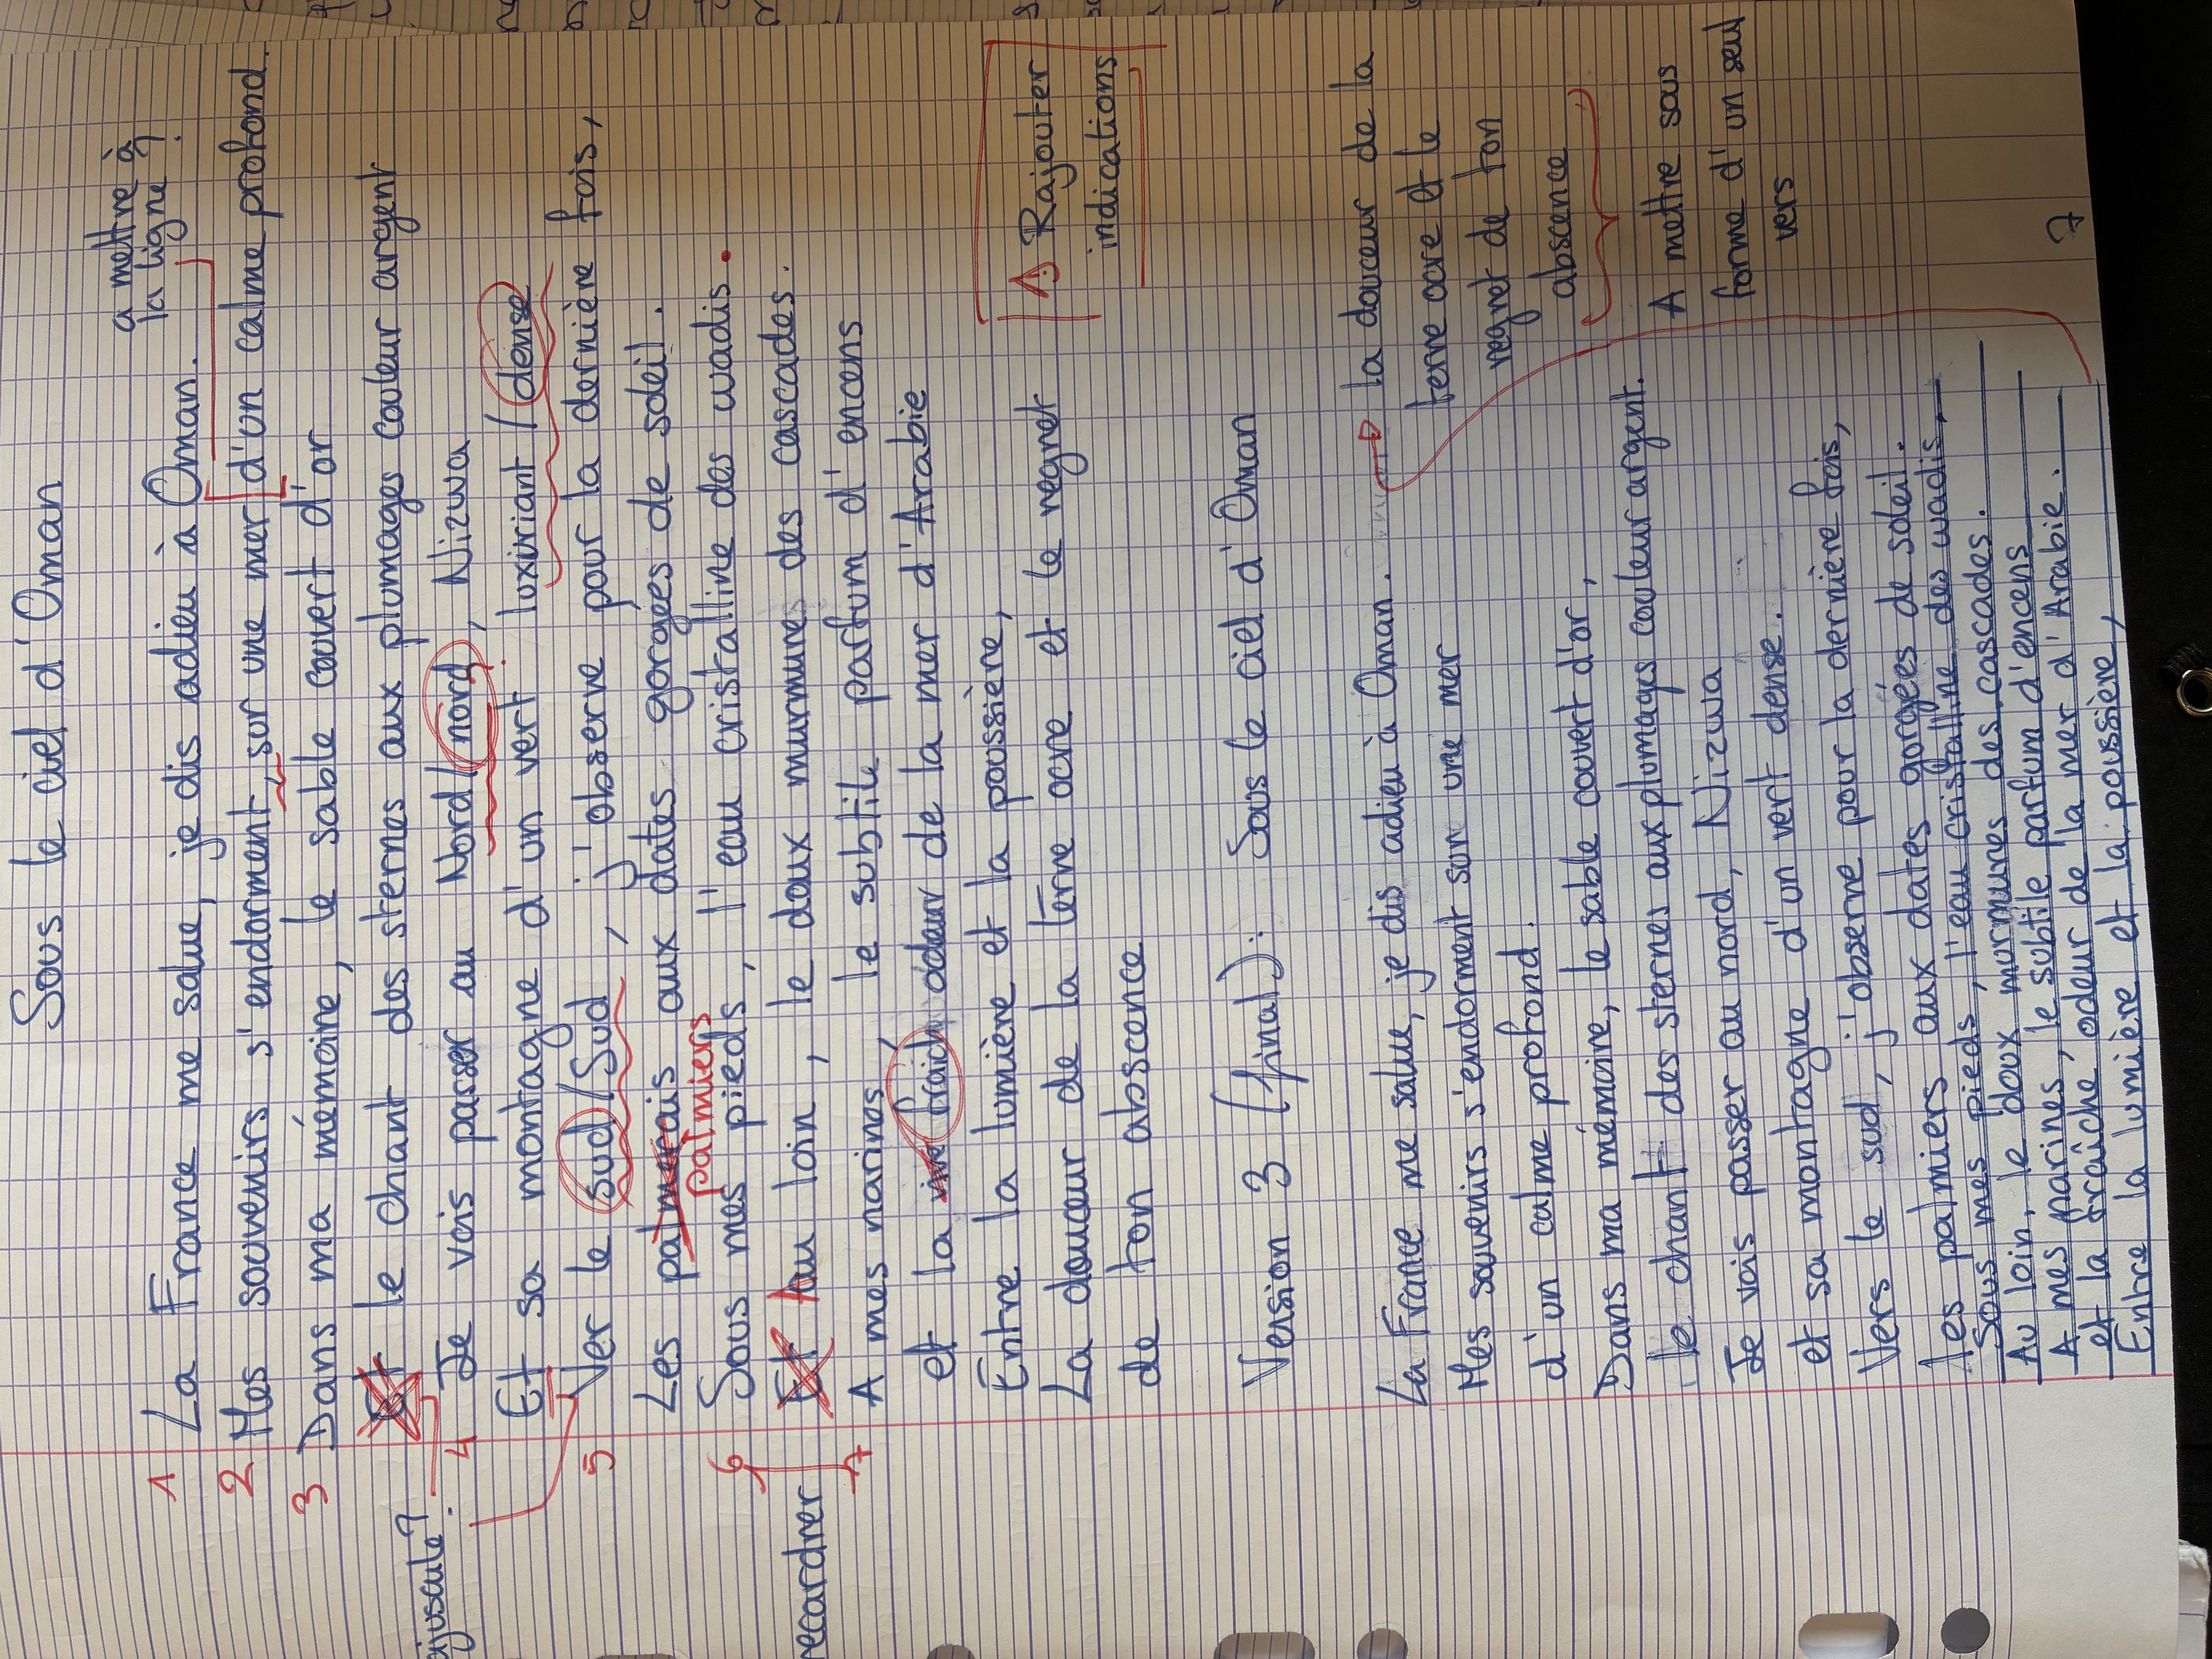 Sous le ciel d'Oman
a mettre à
la ligne ?
1 La France me salue, je dis adieu à Oman.
2 Mes souvenirs s'endorment, sur une mer d'un calme profond.
3 Dans ma mémoire, le sable couvert d'or
Et le chant des sternes aux plumages couleur argent
ajuscule?
4 Je vois passer au Nord/nord, Nizwa
Et sa montagne d'un vert luxiriant / dense
5 Ver le sud/Sud, j'observe pour la dernière fois,
Les palmerais aux dates gorgées de soleil.
palmiers
6 Sous mes pieds, l'eau cristalline des wadis.
Et au loin, le doux murmures des cascades.
recardrer
7 A mes narines, le subtile parfum d'encens
et la vive fraich odeur de la mer d'Arabie
Entre la lumière et la poussière,
La douceur de la terre ocre et le regret
de ton abscence
⚠ Rajouter
indications
Version 3 (final): Sous le ciel d'Oman
La France me salue, je dis adieu à Oman.
Mes souvenirs s'endorment sur une mer
d'un calme profond.
Dans ma mémoire, le sable couvert d'or,
le chant des sternes aux plumages couleur argent.
Je vois passer au nord, Nizwa
et sa montagne d'un vert dense.
Vers le sud, j'observe pour la dernière fois,
les palmiers aux dates gorgées de soleil.
Sous mes pieds, l'eau cristalline des wadis,
Au loin, le doux murmures des cascades.
A mes narines, le subtile parfum d'encens
et la fraîche odeur de la mer d'Arabie.
Entre la lumière et la poussière,
la douceur de la
terre ocre et le
regret de ton
abscence
A mettre sous
forme d'un seul
vers
7